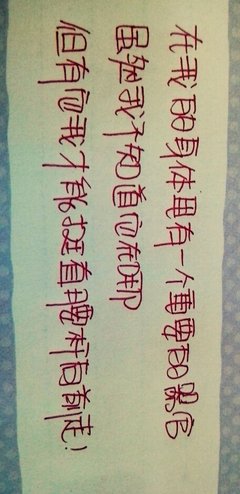 在我的身体里有一个重要的器官
虽然我不知道它在哪
但有它我才能挺直腰杆向前走!